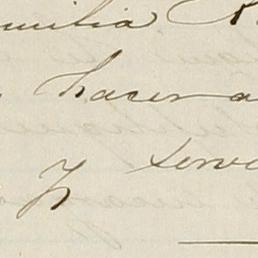 familia R
hacer a
y serv